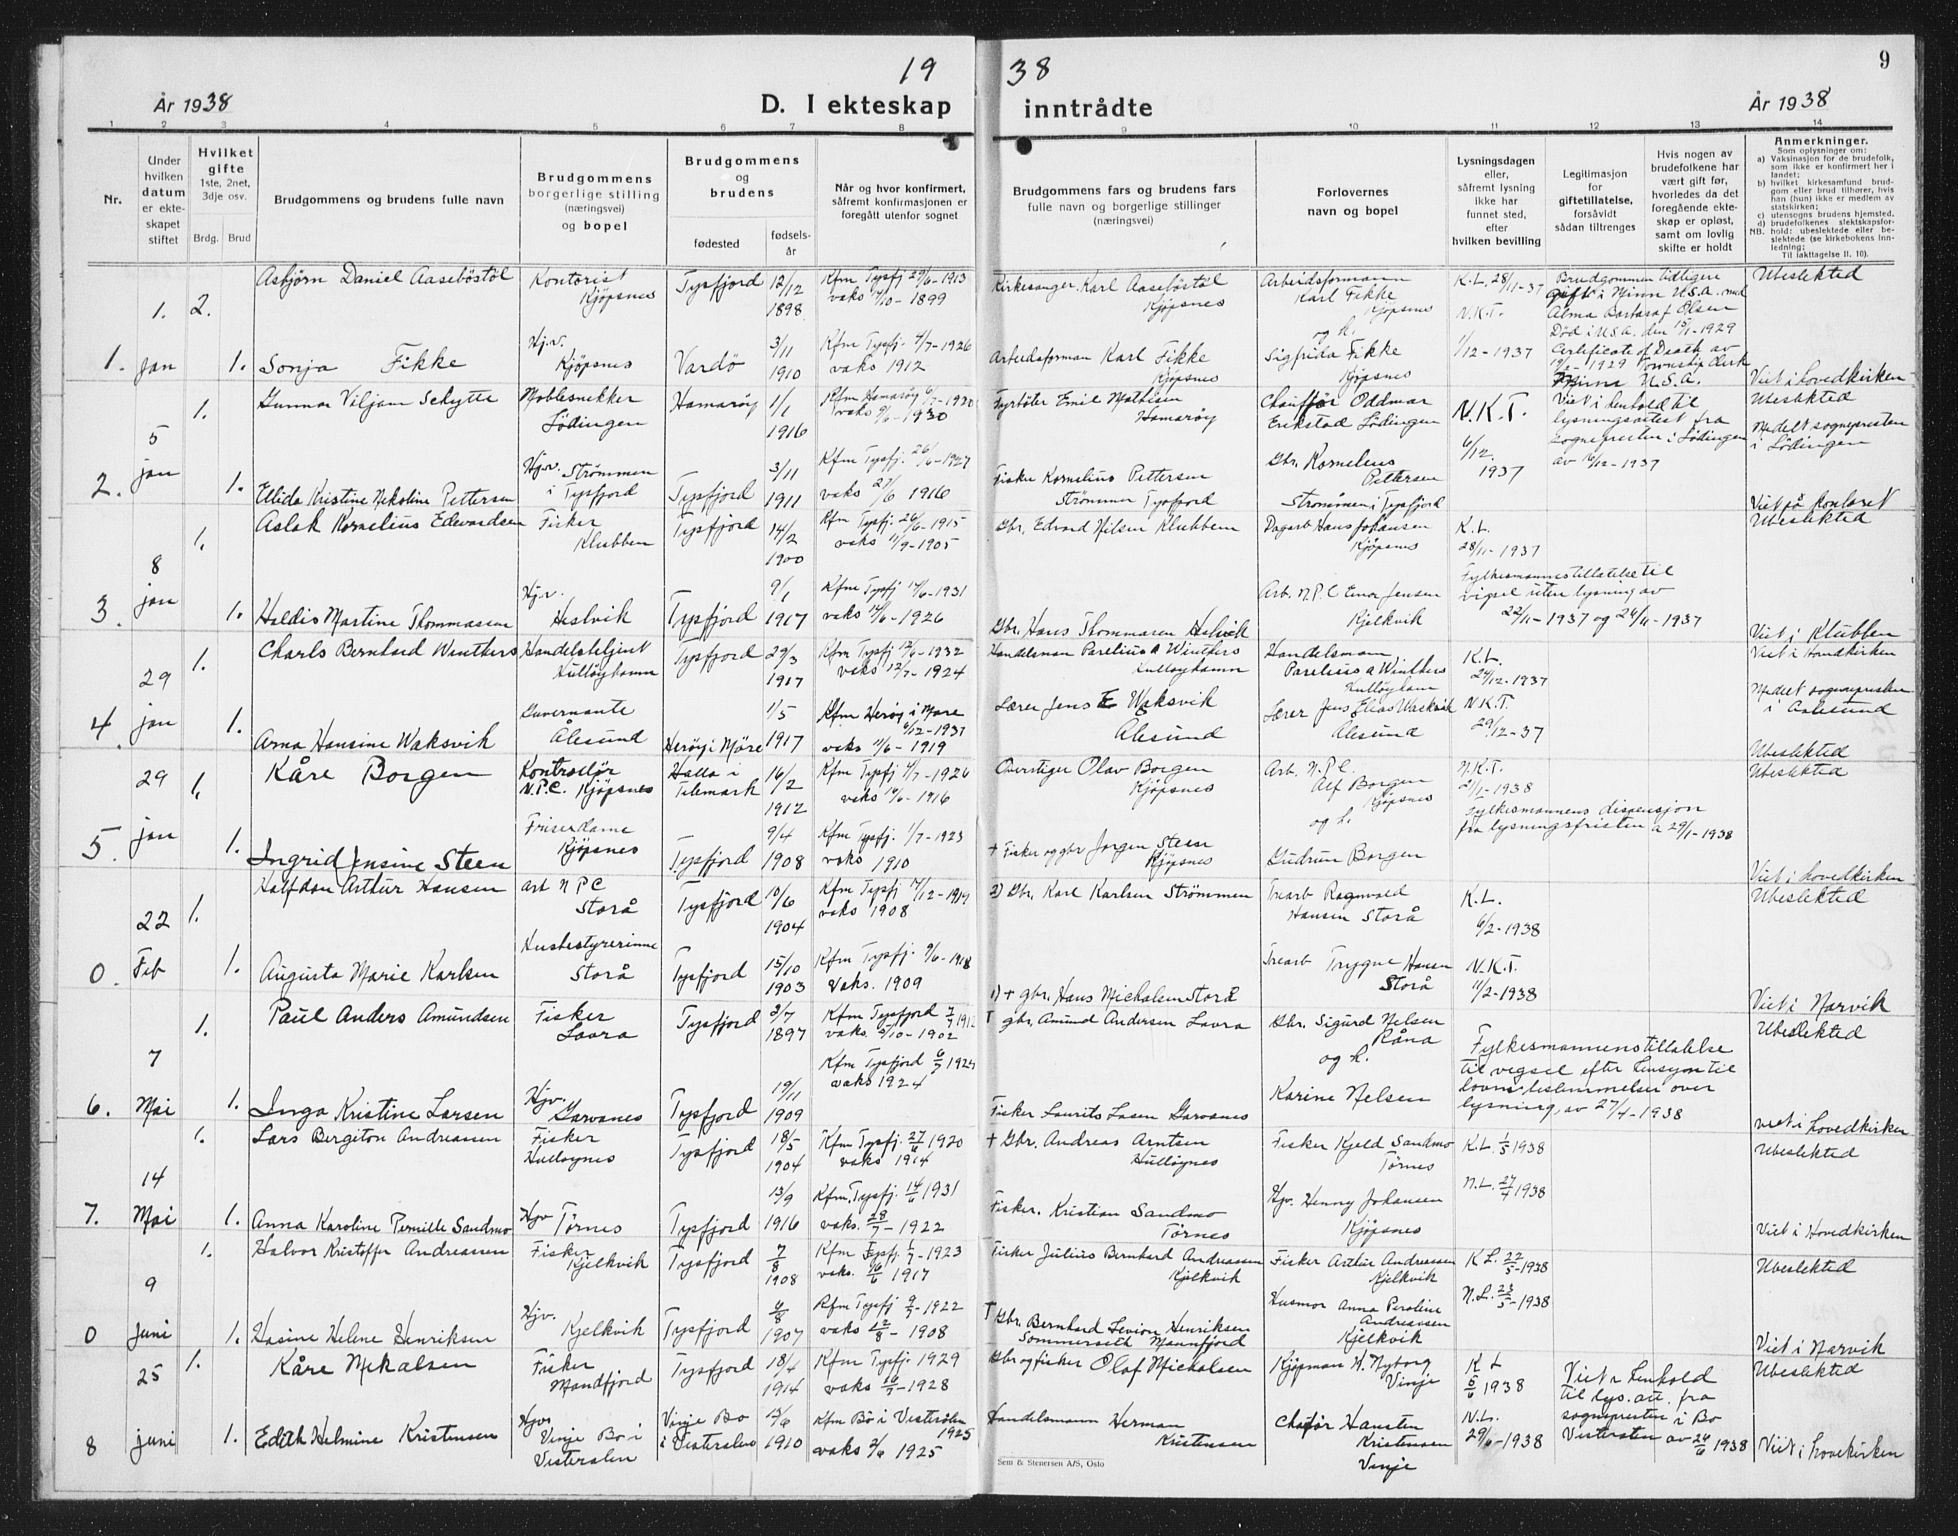 19 38
9
År 1938
D. I ekteskap inntrådte
År 1938
1 2 3 4 5 6 7 8 9 10 11 12 13 14
Nr.
Under hvilken datum er ekteskapet stiftet
Hvilket gifte
1ste, 2net, 3dje osv.
Brdg. Brud
Brudgommens og brudens fulle navn
Brudgommens borgerlige stilling (næringsvei) og bopel
Brudgommens og brudens
fødested
fødsels-år
Når og hvor konfirmert, såfremt konfirmasjonen er foregått utenfor sognet
Brudgommens fars og brudens fars fulle navn og borgerlige stillinger (næringsvei)
Forlovernes navn og bopel
Lysningsdagen eller, såfremt lysning ikke har funnet sted, efter hvilken bevilling
Legitimasjon for giftetillatelse, forsåvidt sådan tiltrenges
Hvis nogen av brudefolkene har vært gift før, hvorledes da det foregående ekteskap er opløst, samt om lovlig skifte er holdt
Anmerkninger.
Som oplysninger om:
a) Vaksinasjon for de brudefolk, som ikke er konfirmert her i landet;
b) hvilket kirkesamfund brudgom eller brud tilhører, hvis han (hun) ikke er medlem av statskirken;
c) utensogns brudens hjemsted.
d) brudefolkenes slektskapsforhold: ubeslektede eller beslektede (se kirkebokens innledning;
NB. Til iakttagelse II, 10).
1. 1. jan 2. Asbjørn Daniel Aasebøstøl Kontorist Kjøpsnes Tysfjord 12/12 1898 Kfm Tysfj. 29/6-1913 vaks 17/10-1899 Kirkesanger Karl Aasebøstøl Kjøpsnes Arbeidsformann Karl Fikke Kjøpsnes og h. K.L. 28/11-37 N.K.T. Brudgommen tidligere gift i Minn U.S.A. med Alma Olsen Død i U.S.A. den 15/1-1929 Ubeslekted
1. Sonja Fikke Hj.v. Kjøpsnes Vardø 3/11 1910 Kfm Tysfj. 4/7-1926 vaks 1912 Arbeidsforman Karl Fikke Kjøpsnes Sigfrida Fikke Kjøpsnes 1/12-1937 Certificate of Death av 1929 Township Clerk Minn U.S.A. Viet i hovedkirken
2. 5 jan 1. Gunnar Viljam Schytte Møblesnekker Lødingen Hamarøy 1/1 1916 Kfm Hamarøy 6/7-1930 vaks 9/6-1930 Fyrbøter Emil Mathisen Hamarøy Chauffør Oddmar Erikstad Lødingen N.K.T. Viet i henhold til lysningsattest fra sognepresten i Lødingen av 16/12-1937 Ubeslekted Medelt sognepresten i Lødingen
1. Ellida Kristine Nikoline Pettersen Hj.v. Strømmen i Tysfjord Tysfjord 3/11 1911 Kfm Tysfj. 26/6-1927 vaks 27/6 1916 Fisker Kornelius Pettersen Strømmen Tysfjord Gbr. Kornelius Pettersen Strømmen i Tysfjord 6/12 1937 Viet på kontoret
3. 8 jan 1. Aslak Kornelius Edvardsen Fisker Klubben Tysfjord 14/2 1900 Kfm Tysfj. 26/6-1915 vaks 11/9-1905 Gbr. Edvard Nilsen Klubben Dagarb Hans Johansen Kjøpsnes K.L. 28/11-1937 Ubeslekted
1. Haldis Martine Thommasen Hj.v. Heslvik Tysfjord 9/1 1917 Kfm Tysfj 14/6-1931 vaks 14/6-1926 Gbr. Hans Thommasen Heslvik Arb. N.P.C Einar Jensen Kjelkvik Fylkesmannens tillatelse til vigsel uten lysning av 22/11-1937 og 24/11-1937 Viet i Klubben
4. 29 jan 1. Charls Bernhard Winthers Handelsbetjent Hulløyhamn Tysfjord 29/3 1917 Kfm Tysfj 12/6-1932 vaks 12/7-1924 Handelsman Parelius A Winthers Hulløyhamn Handelsmann Parelius A Winthers Hulløyhamn K.L. 24/12-1937 Viet i Hovedkirken Medelt sognepresten i Aalesund
1. Arna Hansine Waksvik Guvernante Ålesund Herøy i Møre 1/5 1917 Kfm Herøy i Møre 6/12-1931 vaks 11/6-1919 Lærer Jens E Waksvik Ålesund Lærer Jens Elias Waksvik Ålesund N.K.T. 29/12-37 Ubeslekted
5. 29 jan 1. Kåre Borgen Kontrollør N.P.C. Kjøpsnes Holla i Telemark 16/2 1912 Kfm Tysfj 4/7-1926 vaks 14/6-1916 Overstiger Olav Borgen Kjøpsnes Arb. N.P.C. Alf Borgen Kjøpsnes og h. N.K.T. 21/1-1938 Fylkesmannens dispensjon fra lysningsfristen a 29/1-1938 Ubeslekted
1. Ingrid Jensine Steen Friserdame Kjøpsnes Tysfjord 9/4 1908 Kfm Tysfj. 1/7-1923 vaks 1910 + Fisker og gbr Jørgen Steen Kjøpsnes Gudrun Borgen Viet i hovedkirken
0. 22 Feb 1. Halfdan Arthur Hansen arb N P C Storå Tysfjord 10/6 1904 Kfm Tysfj 14/12-1919 vaks 1908 2) Gbr. Karl Karlsen Strømmen Trearb Ragnvald Hansen Storå K.L. 6/2-1938 Ubeslekted
1. Augusta Marie Karlsen Husbestyrerinne Storå Tysfjord 15/10 1903 Kfm Tysfj. 9/6-1918 Vaks. 1909 1) + gbr. Hans Mickalsen Storå Trearb Trygve Hansen Storå N.K.T. 11/2-1938 Viet i Narvik
6. 7 Mai 1. Paul Anders Amundsen Fisker Lavra Tysfjord 3/7 1897 Kfm Tysfjord 7/7 1912 vaks. 9/10-1902 † gbr. Amund Andersen Lavra Gbr. Sigurd Nilsen Råna og h. Fylkesmannens tillatelse til vigsel efter hensyn til lovens bestemmelser over lysning, av 27/4-1938 Ubeslekted
1. Inga Kristine Larsen Hjv. Garvanes Tysfjord 19/11 1909 Kfm Tysfjord 6/7 1924 vaks 1924 Fisker Laurits Larsen Garvanes Karine Nelsen viet i hovedkirken
7. 14 Mai 1. Lars Bergiton Andreassen Fisker Hulløynes Tysfjord 18/5 1904 Kfm Tysfj. 27/6 1920 vaks 1914 + Gbr. Andreas Arntsen Hulløynes Fisker Kjeld Sandmo Tørnes K.L. 1/5 1938 Ubeslekted
1. Anna Karoline Pernille Sandmo Hjv Tørnes Tysfjord 13/9 1916 Kfm. Tysfj. 14/6 1931 vaks. 28/7-1922 Fisker. Kristian Sandmo Tørnes Hjv. Henny Johansen Kjøpsnes N.L. 27/4 1938 Viet i Hovedkirken
0 9 juni 1. Halvor Kristoffer Andreassen Fisker Kjelkvik Tysfjord 7/8 1908 Kfm Tysf. 1/7-1923 vaks. 16/6 1917 Fisker Julius Bernhard Andreassen Kjelkvik Fisker Arthur Andreassen Kjelkvik K L. 22/5-1938 Ubeslekted
1. Hasine Helene Henriksen Hjv. Kjelkvik Tysfjord 6/8 1907 Kfm Tysfj 9/7-1922 vaks 12/8-1908 † Gbr. Bernhard Levion Henriksen Sommerseth Mannfjord Husmor Anna Peroline Andreassen Kjelkvik N.L. 23/5-1938 Viet i Narvik
8 25 juni 1. Kåre Mikalsen Fisker Mandfjord Tysfjord 18/4 1914 Kfm Tysfj. 1929 vaks 16/7-1928 Gbr og fisker Olaf Mickalsen Kjøpman H. Nyborg Vinje K L 5/6 1938 Viet i henhold til lys. att. fra sognepresten i Bø Vesterålen av 24/6 1938 Ubeslekted
1. Edith Helmine Kristensen Hjv Vinje Bø i Vesterålen Vinje Bø i Vesterålen 13/6 1910 Kfm Bø i Vesterålen 1925 vaks 3/6 1925 Handelsmann Herman Kristensen Chafør Hansten Kristensen Vinje N.L. 29/6-1938 Viet i hovekirken
Sem & Stenersen A/S, Oslo